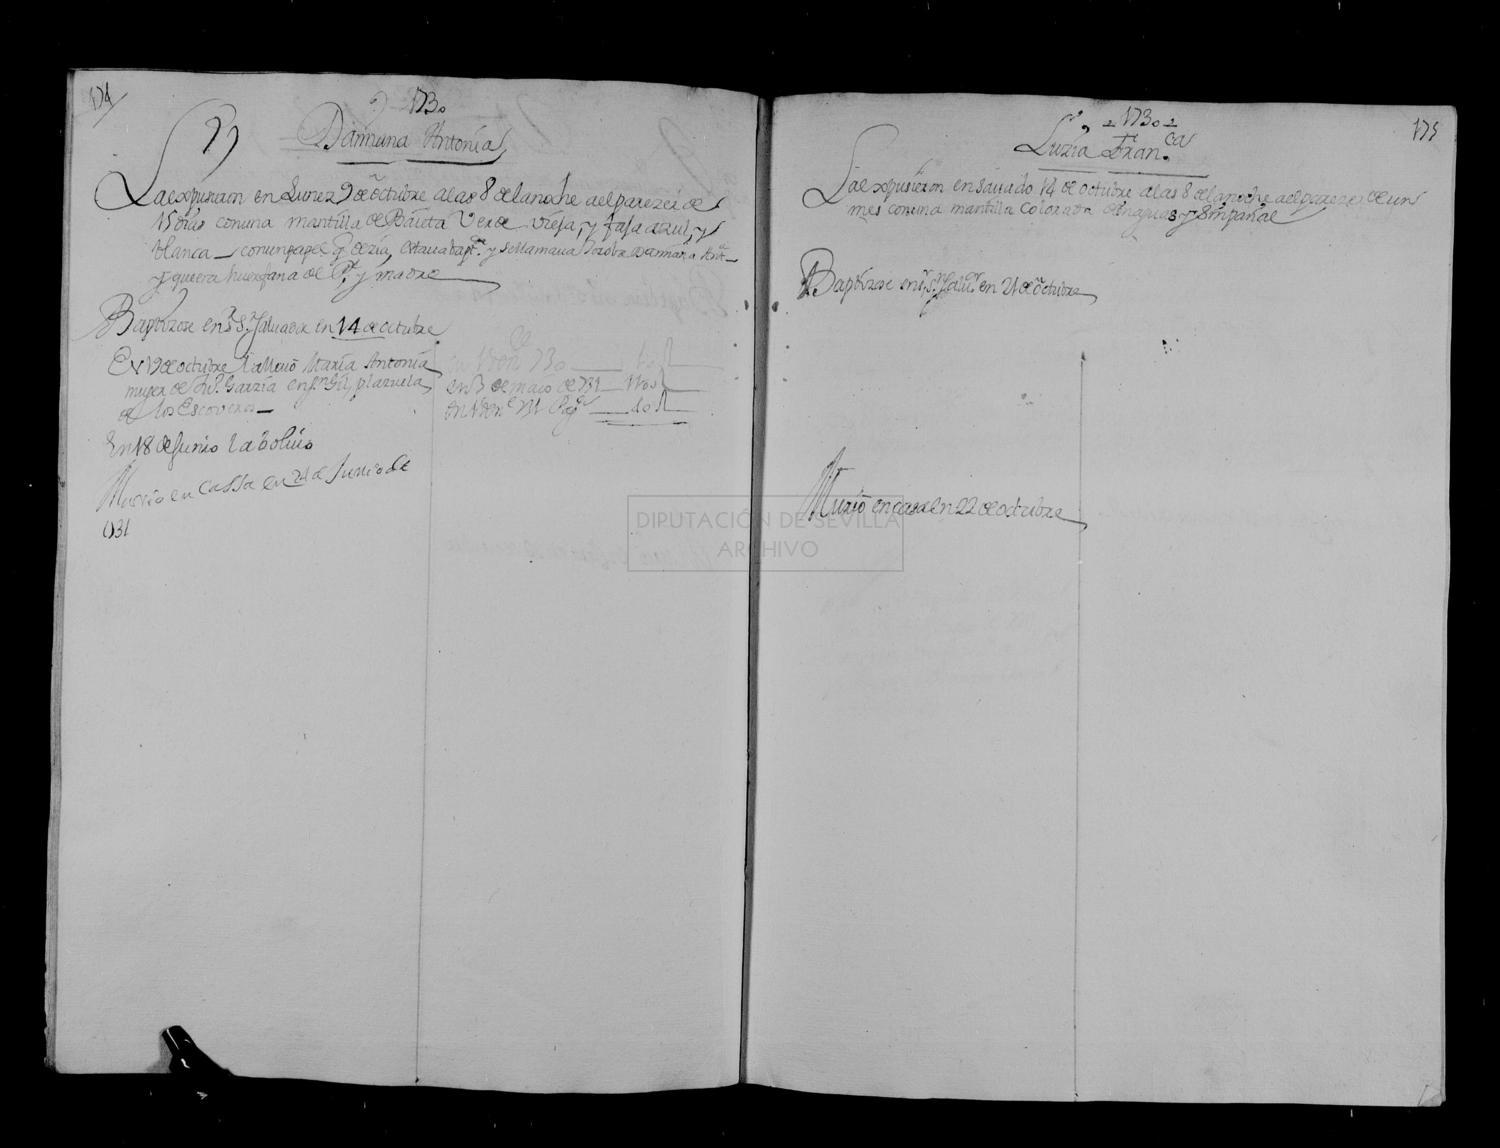 174
1730
Damiana Antonia
La expusieron en Lunez 9 de octubre a las 8 de la noche a el parezer de
15 dias con una mantilla de Baieta Verde viefa, y fafa azul, y
blanca con un papel q dezia, estava bapt. y se llamava Damiana Ant.
y que era huerfana de P.e y madre
Baptizose en S. Salvador en 14 de octubre
En 19 de octubre la llevó Maria Antonia
muger de Garzia en S.n Gil, plazuela
de los Escoveros
en 3 de maio de 731
En 18 de Junio la bolvio
Murió en Cassa en 21 de Junio de
1731
175
1730
Luzia Fran.ca
La expusieron en savado 14 de octubre a las 8 de la noche a el parezer de un
mes con una mantilla Colorada enaguas y Empañal
Baptizose en S. Salv.or en 21 de octubre
Murió en casa en 22 de octubre
DIPUTACIÓN DE SEVILLA
ARCHIVO